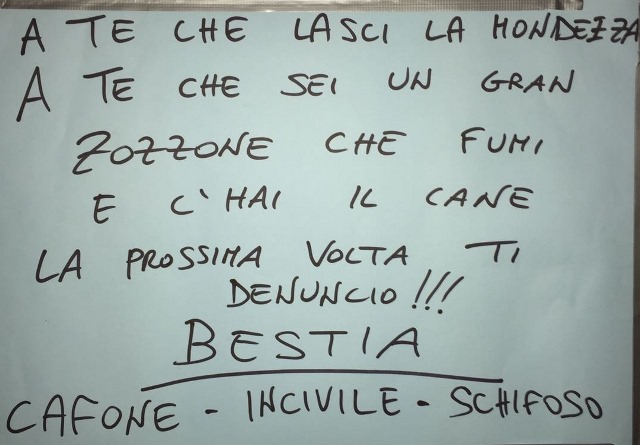 A TE CHE LASCI LA MONDEZZA
A TE CHE SEI UN GRAN
ZOZZONE CHE FUMI
E C'HAI IL CANE
LA PROSSIMA VOLTA TI
DENUNCIO!!!
BESTIA
CAFONE - INCIVILE - SCHIFOSO